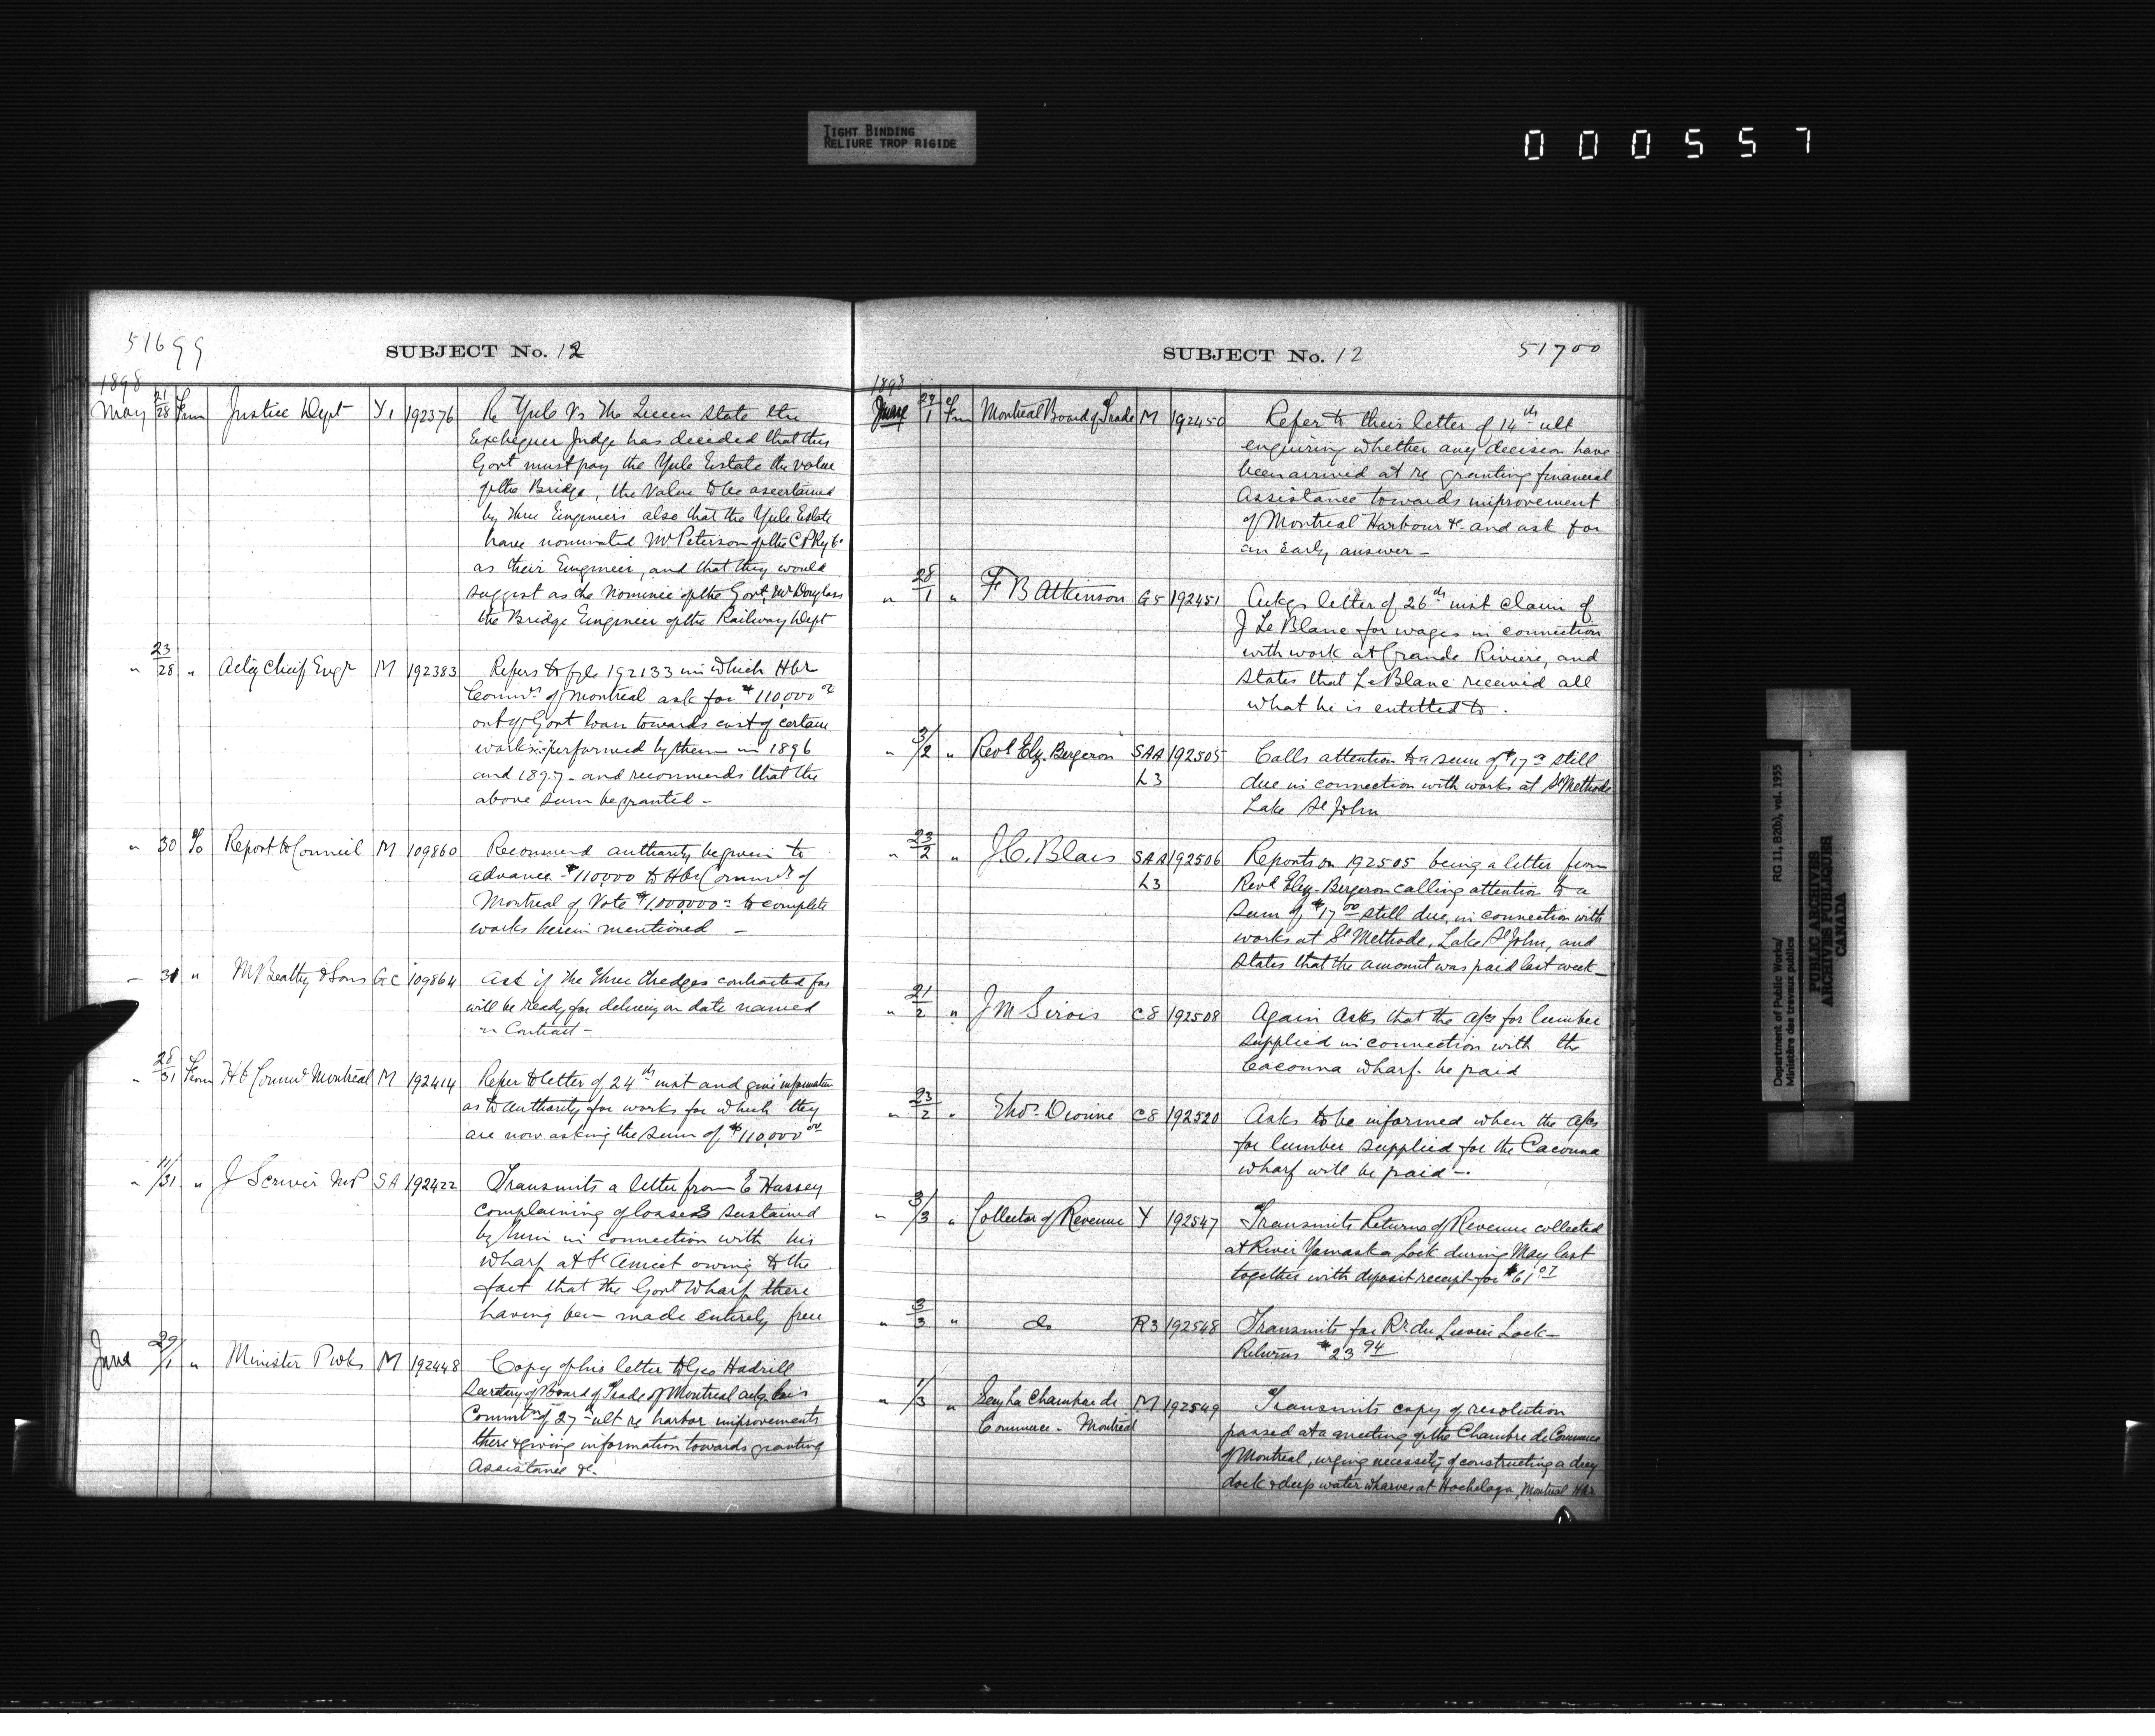 TIGHT BINDING
RELIURE TROP RIGIDE
000557
51699
SUBJECT No. 12
1898
May 21/28 From Justice Dept Y1 192376 Re Yule Vs The Queen state the
Exchequer Judge has decided that the
Govt must pay the Yule Estate the value
of the Bridge, the Value to be ascertained
by three Engineers also that the Yule Estate
have nominated Mr Peterson of the C P Ry Co
as their Engineer, and that they would
suggest as the Nominee of the Govt, Mr Douglass
the Bridge Engineer of the Railway Dept
" 23/28 " Actg Chief Engr M 192383 Refers to file 192133 in which Hbr
Commrs of Montreal ask for $110,000 00
out of Govt loan towards cost of certain
works performed by them in 1896
and 1897 - and recommends that the
above sum be granted -
" 30 To Report to Council M 109860 Recommend authority be given to
advance $110,000 to Hbr Commrs of
Montreal of Vote $1,000,000 to complete
works herein mentioned -
" 31 " M Beatty & Sons G.C 109864 Ask if the three dredges contracted for
will be ready for delivery on date named
in Contract -
" 28/31 From Hb Commrs Montreal M 192414 Refer to letter of 24th inst and give information
as to authority for works for which they
are now asking the sum of $110,000 00
" 11/31 " J Scriver M.P SA 192422 Transmits a letter from E Hussey
complaining of losses sustained
by him in connection with his
wharf at St Anicet owing to the
fact that the Govt Wharf there
having been made entirely free
June 29/1 " Minister P wks M 192448 Copy of his letter to Geo Hadrill
Secretary of Board of Trade of Montreal ackg his
Commtn of 27th ult re harbor improvements
there & giving information towards granting
Assistance &c.
SUBJECT No. 12
51700
1898
June 27/1 Fm Montreal Board of Trade M 192450 Refer to their letter of 14th ult
enquiring whether any decision have
been arrived at re granting financial
Assistance towards improvement
of Montreal Harbour &c. and ask for
an early answer -
" 28/1 " F B Atkinson G5 192451 Ackgs letter of 26th inst claim of
J Le Blanc for wages in connection
with work at Grande Riviere, and
states that LeBlanc received all
what he is entitled to.
" 3/2 " Revd Elz. Bergeron SAA 192505 Calls attention to a sum of $17 00 still
L3 due in connection with works at St Methode
Lake St John
" 23/2 " J.C. Blais SAA 192506 Reports on 192505 being a letter from
L3 Revd Elz. Bergeron calling attention to a
sum of $17 00 still due, in connection with
works at St Methode, Lake St John, and
states that the amount was paid last week -
" 21/2 " J M Sirois C8 192508 Again Asks that the a/cs for lumber
supplied in connection with the
Cacouna wharf be paid
" 23/2 " Thos. Dionne C8 192520 Asks to be informed when the a/cs
for lumber supplied for the Cacouna
wharf will be paid -
" 3/3 " Collector of Revenue Y 192547 Transmits Returns of Revenue collected
at River Yamaska Lock during May last
together with deposit receipt for $61 07
" 3/3 " do R3 192548 Transmits for Rr du Lievre Lock -
Returns $23 94
" 1/3 " Secy La Chambre de M 192549 Transmits copy of resolution
Commerce - Montreal passed at a meeting of the Chambre de Commerce
of Montreal, urging necessity of constructing a dry
dock & deep water wharves at Hochelaga, Montreal Hbr
Department of Public Works/ RG 11, B2(b), vol. 1955
Ministère des travaux publics
PUBLIC ARCHIVES
ARCHIVES PUBLIQUES
CANADA